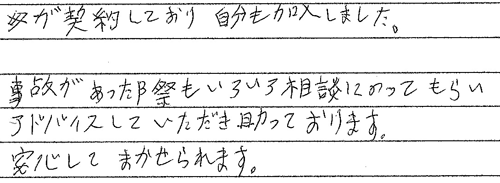 父が契約しており自分も加入しました。
事故があった際もいろいろ相談にのってもらい
アドバイスしていただき助っております。
安心してまかせられます。